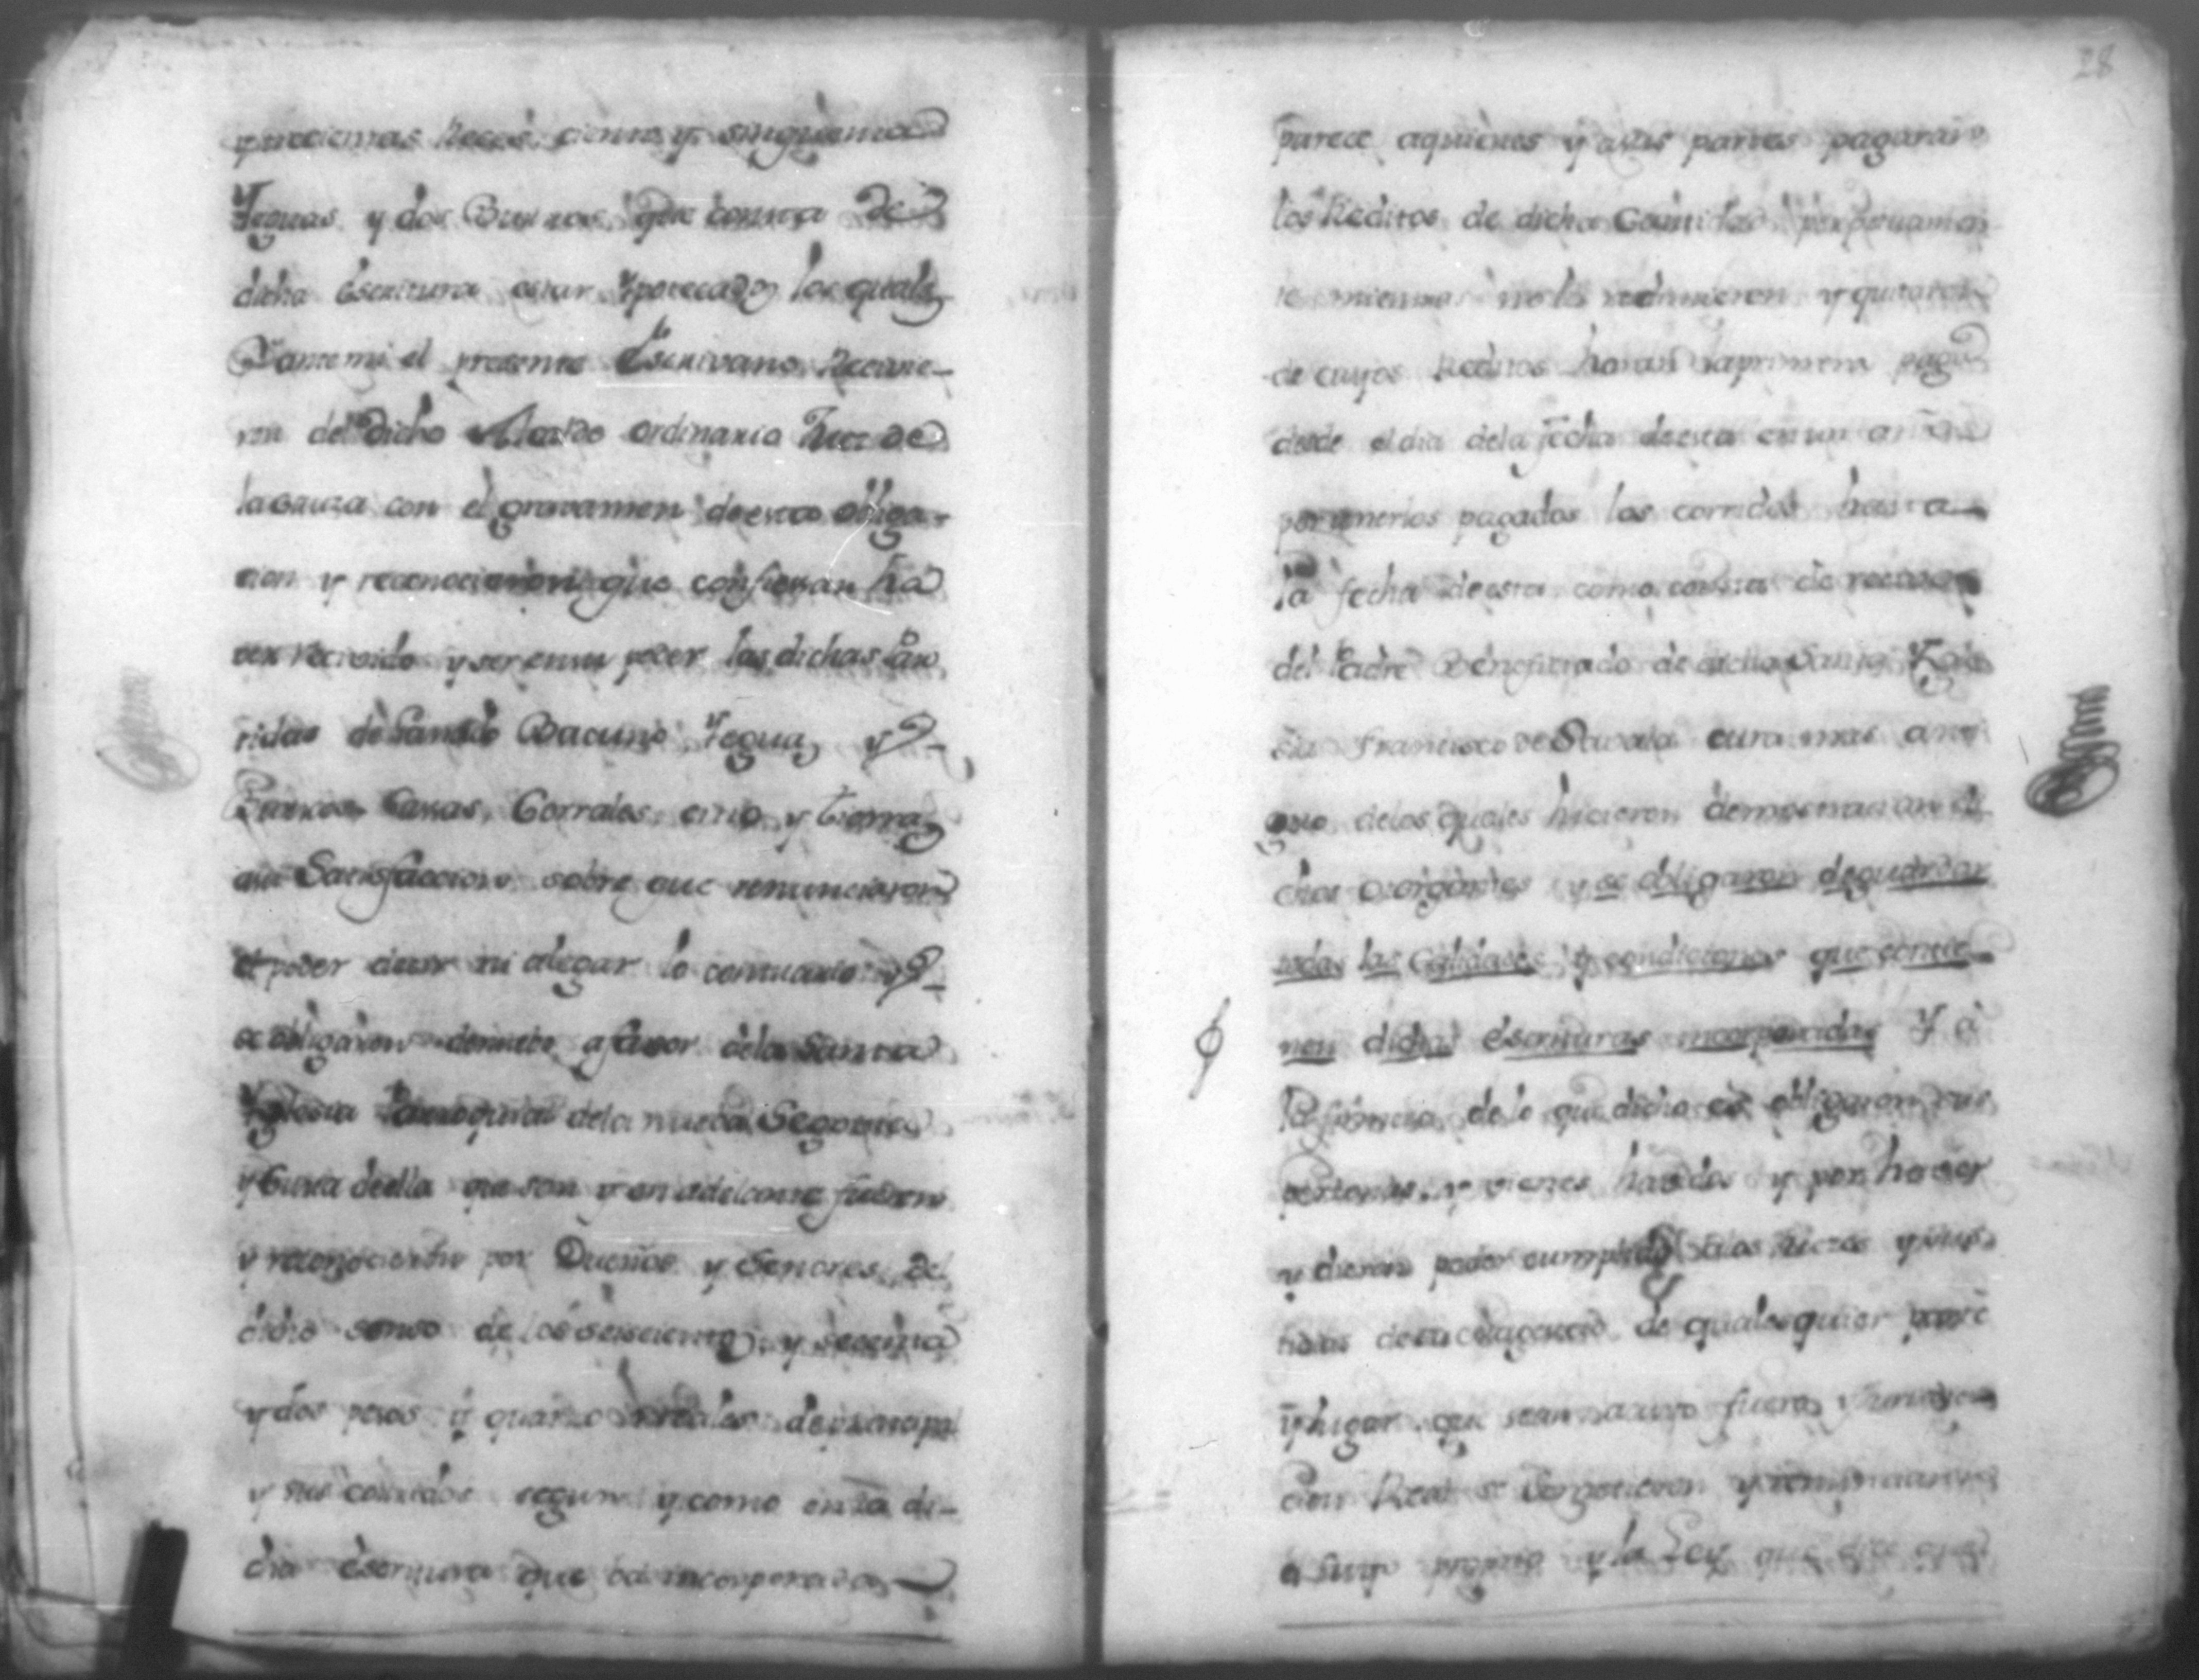 Reces. ciento y singuenta
Yeguas y dos Burros que consta de
dicha Escritura estar Ypotecados los quales
Y ante mi el presente Escrivano Recivie-
ron del dicho Alcalde ordinario Juez de
la causa con el gravamen de esta obliga-
cion y reconocimiento que confiesan ha
ver recivido y ser en su poder las dichas Can
tidas de Ganado Bacuno Yeguas y
Burros Cassas, Corrales, citio y tierras
a su Satisfaccion sobre que renunciaron
el poder decir ni alegar lo contrario y
se obligaron a favor de la Santa
Yglesia Parroquial de la nueba Segovia
y Curas de ella que son y en adelante fueren
y reconocieron por Dueños y Senores del
dicho senso de los seiscientos y sesenta
y dos pesos y quatro reales de principal
y sus corridos segun y como en la di-
cha escritura que va incorporada
28
parece aquienes y a sus partes pagaran
los Reditos de dicha Cantidad perpetuamen
te mientras no los redimieren y quitaren
de cuyos Reditos haran la primera paga
desde el dia de la fecha de esta en un año
por tenerlos pagados los corridos hasta
la fecha de esta como consta de recivos
del Padre Beneficiado de dicha Santa Ygle
cia Francisco de Savala cura mas anti
guo de los quales hicieron demostracion di
chos otorgantes y se obligaron de guardar
todas las Calidades y condiciones que contie-
nen dichas escrituras incorporadas Y a
la firmeza de lo que dicho es obligaron sus
personas y vienes havidos y por haver
y dieron poder cumplido a los Jueces y Jus
ticias de su Magestad de qualesquier parte
y lugar que sean a cuyo fuero y Jurisdic
cion Real se sometieron y renunciaron
el suyo propio y la Ley que dice que